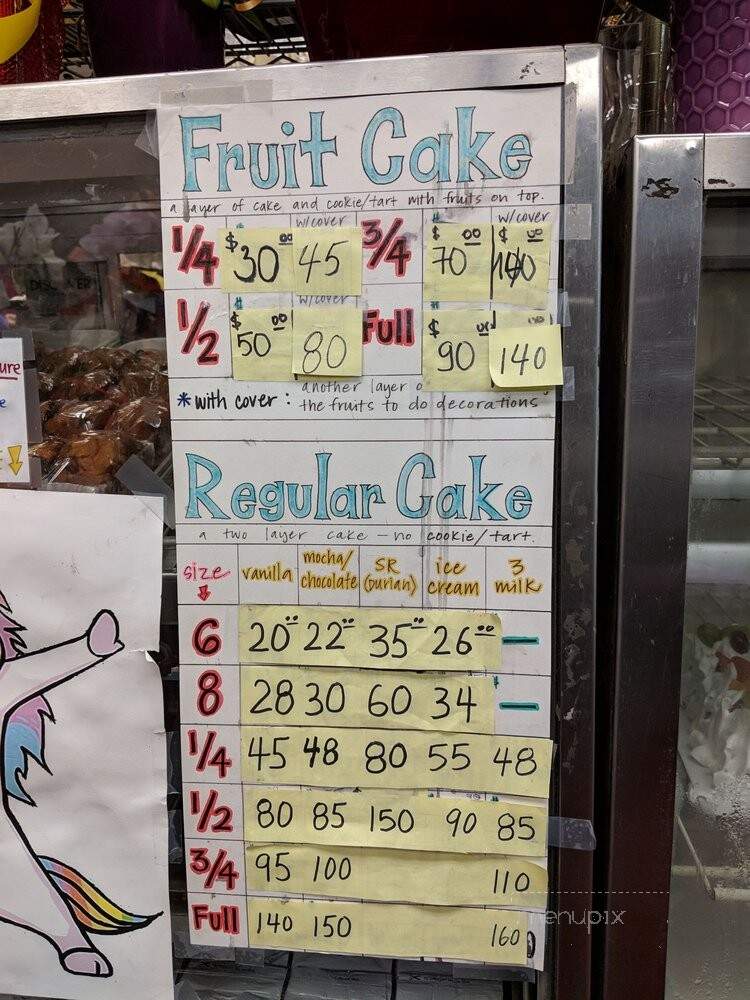 Fruit Cake
a layer of cake and cookie/tart with fruits on top.
w/cover w/cover
1/4 $30.00 45 3/4 $70.00 $
w/cover
1/2 $50.00 80 Full $90.00 140
*with cover: another layer o
the fruits to do decorations
Regular Cake
a two layer cake - no cookie/tart.
size vanilla mocha/chocolate SR (Durian) ice cream 3 milk
6 20.00 22.00 35.00 26.00 —
8 28 30 60 34 —
1/4 45 48 80 55 48
1/2 80 85 150 90 85
3/4 95 100 110
Full 140 150 160
menupix